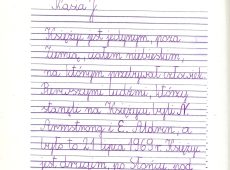 Kasia J.
Księżyc jest jedynym, poza
Ziemią, ciałem niebieskim,
na którym przebywał człowiek.
Pierwszymi ludźmi, którzy
stanęli na Księżycu byli N.
Armstrong i E. Aldrin, a
było to 21 lipca 1969 r. Księżyc
jest drugim, po Słońcu, pod